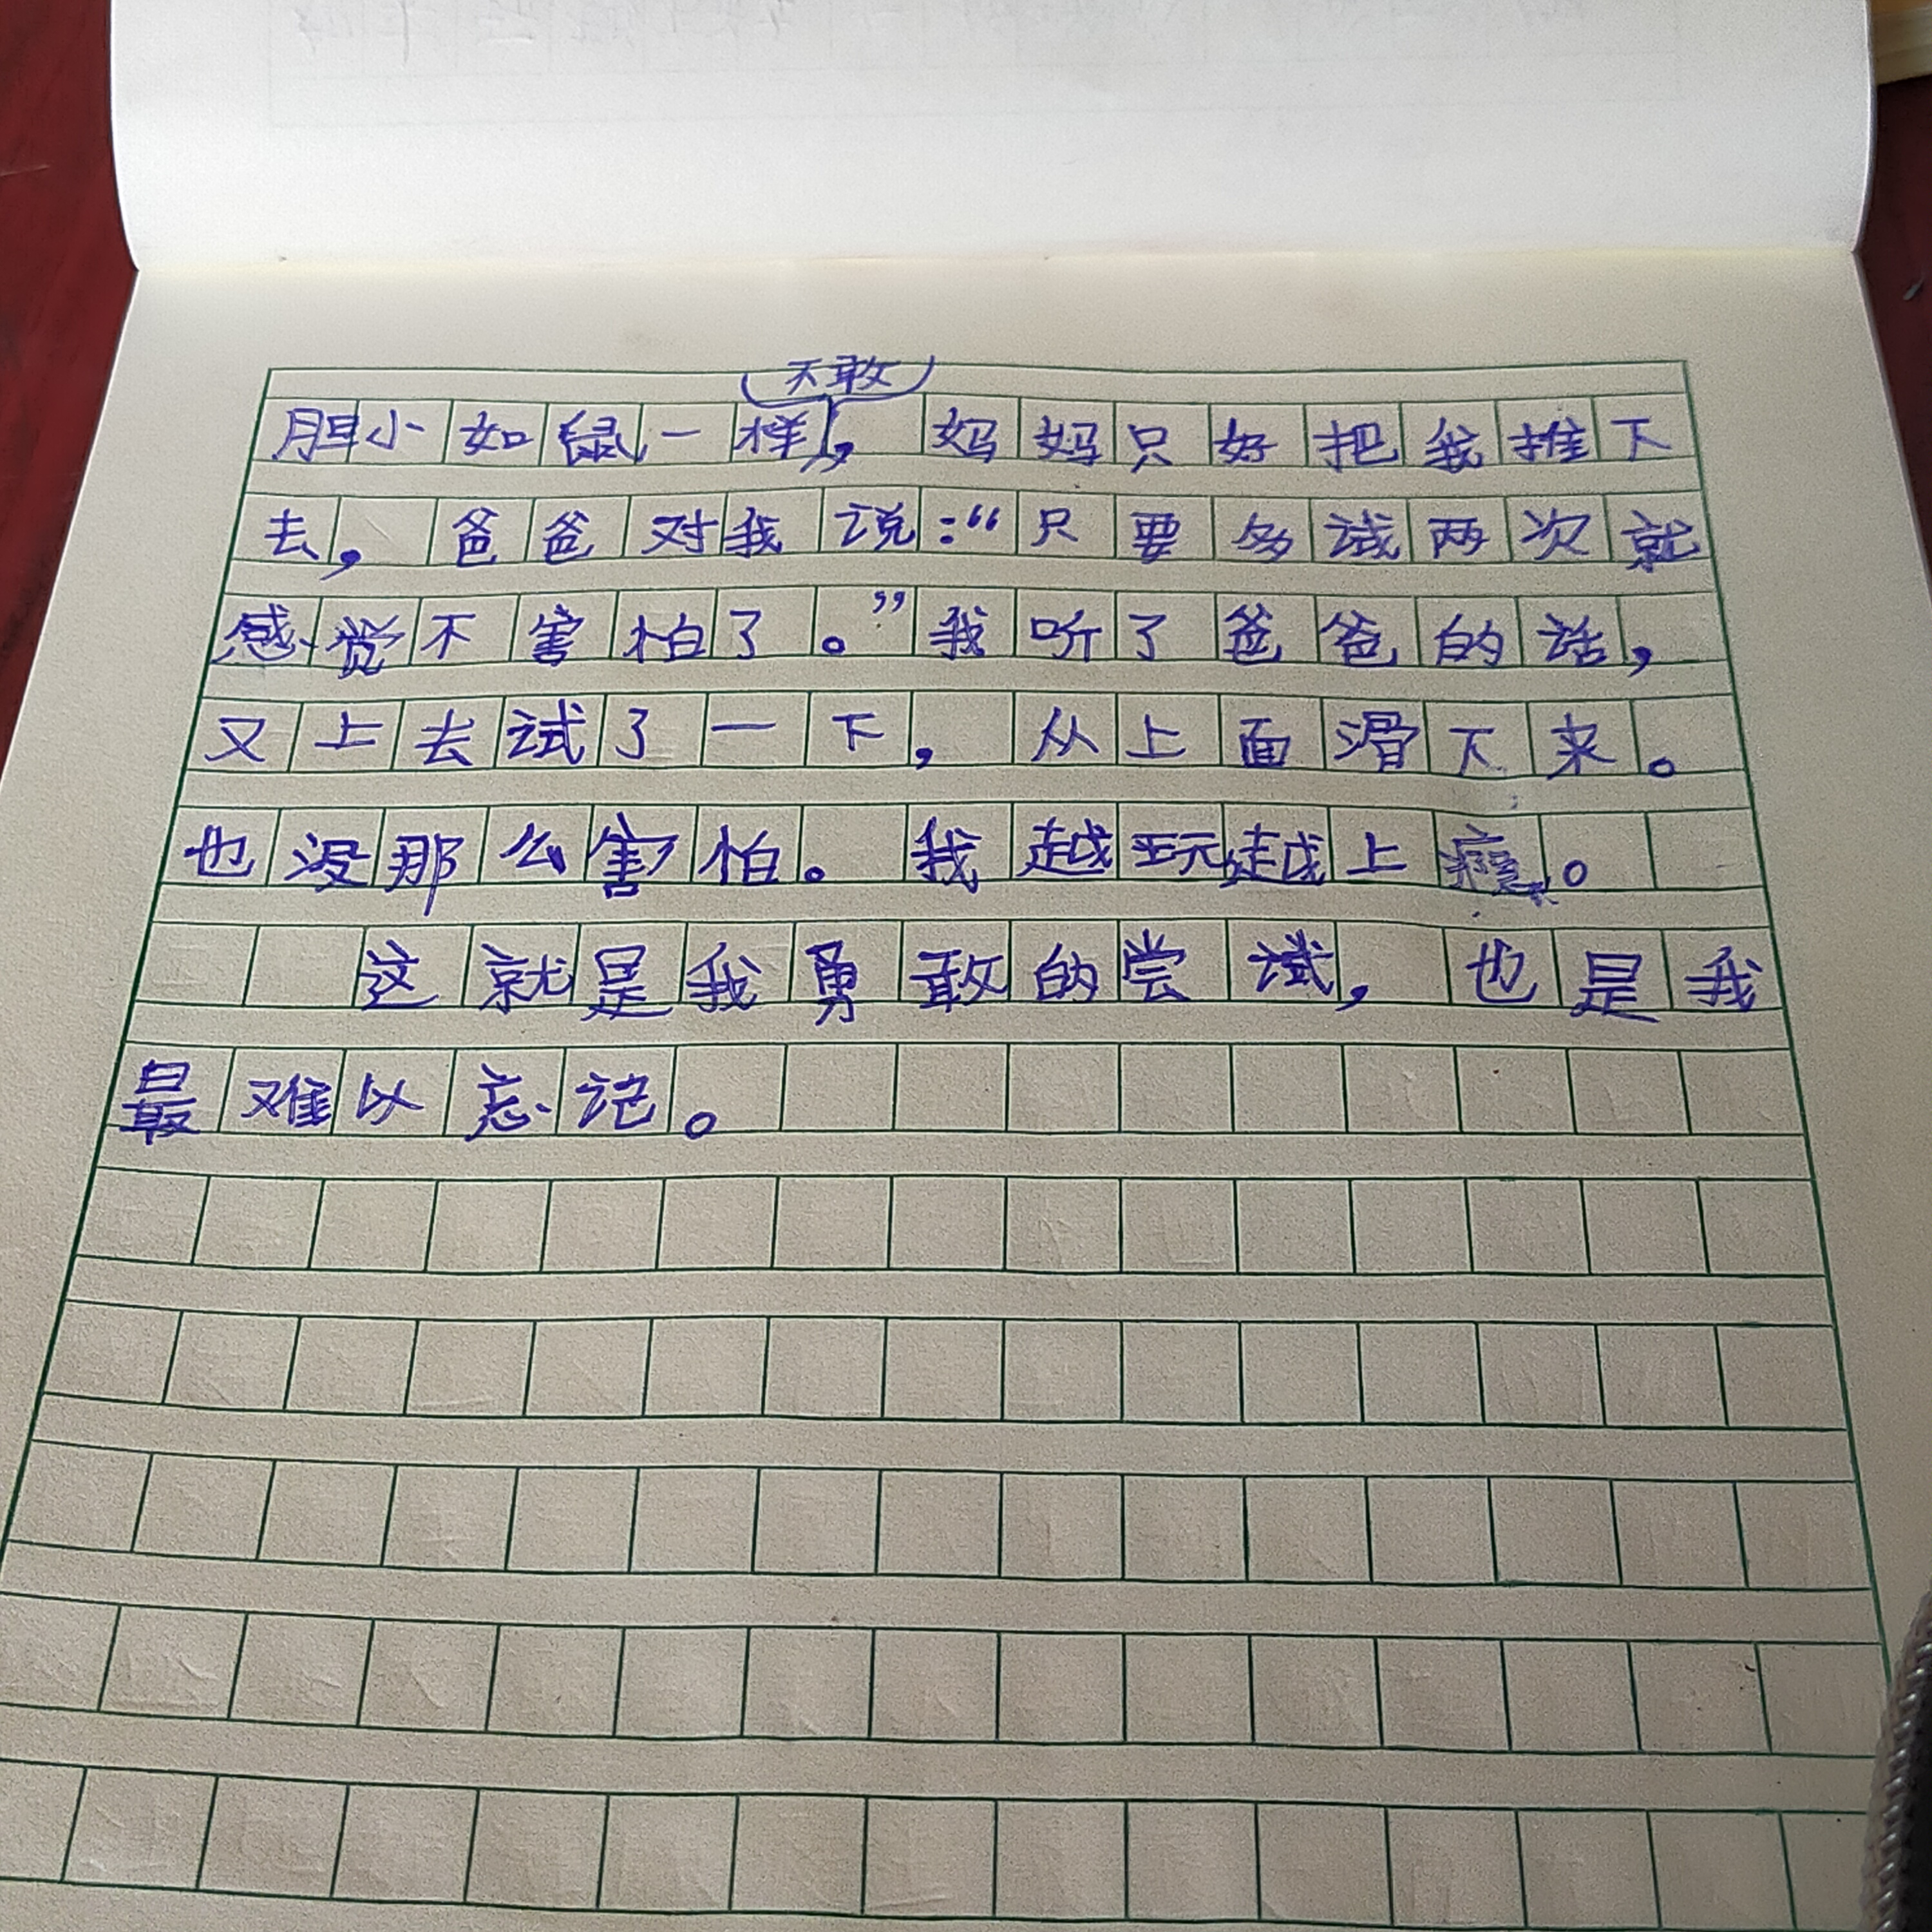 不敢
胆小如鼠一样，妈妈只好把我推下
去，爸爸对我说：“只要多试两次就
感觉不害怕了。”我听了爸爸的话，
又上去试了一下，从上面滑下来。
也没那么害怕。我越玩越上瘾。
这就是我勇敢的尝试，也是我
最难以忘记。